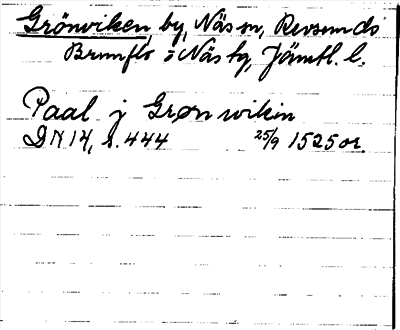 Grönviken, by, Näs sn, Revsunds
Brunflo o Näs tg, Jämtl. l.
Paal j Grøn wikin
DN 14, s. 444 25/9 1525 or.